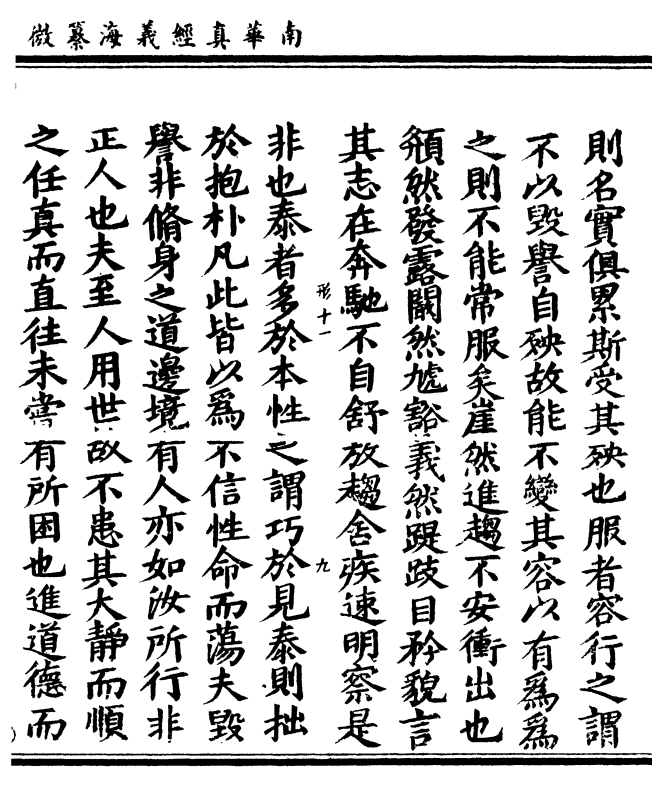 南華真經義海纂微
則名實俱累斯受其殃也服者容行之謂
不以毀譽自殃故能不變其容以有為為
之則不能常服矣崖然進趨不安衝出也
頯然發露闞然虓豁義然踶跂自矜貌言
其志在奔馳不自舒放趨舍疾速明察是
形十一
九
非也泰者多於本性之謂巧於見泰則拙
於抱朴凡此皆以為不信性命而蕩夫毀
譽非脩身之道邊境有人亦如汝所行非
正人也夫至人用世故不患其大靜而順
之任真而直往未嘗有所困也進道德而